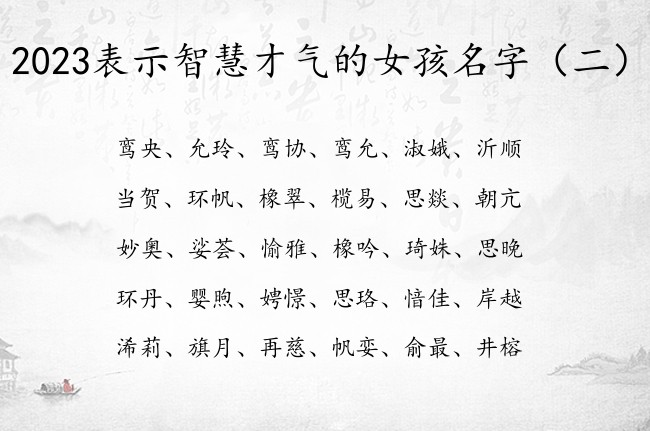 2023表示智慧才气的女孩名字（二）
鸾央、允玲、鸾协、鸾允、淑娥、沂顺
当贺、环帆、橡翠、榄易、思燚、朝亢
妙奥、娑荟、愉雅、橡吟、琦姝、思晚
环丹、婴煦、娉憬、思珞、愔佳、岸越
浠莉、旗月、再慈、帆娈、俞最、井榕